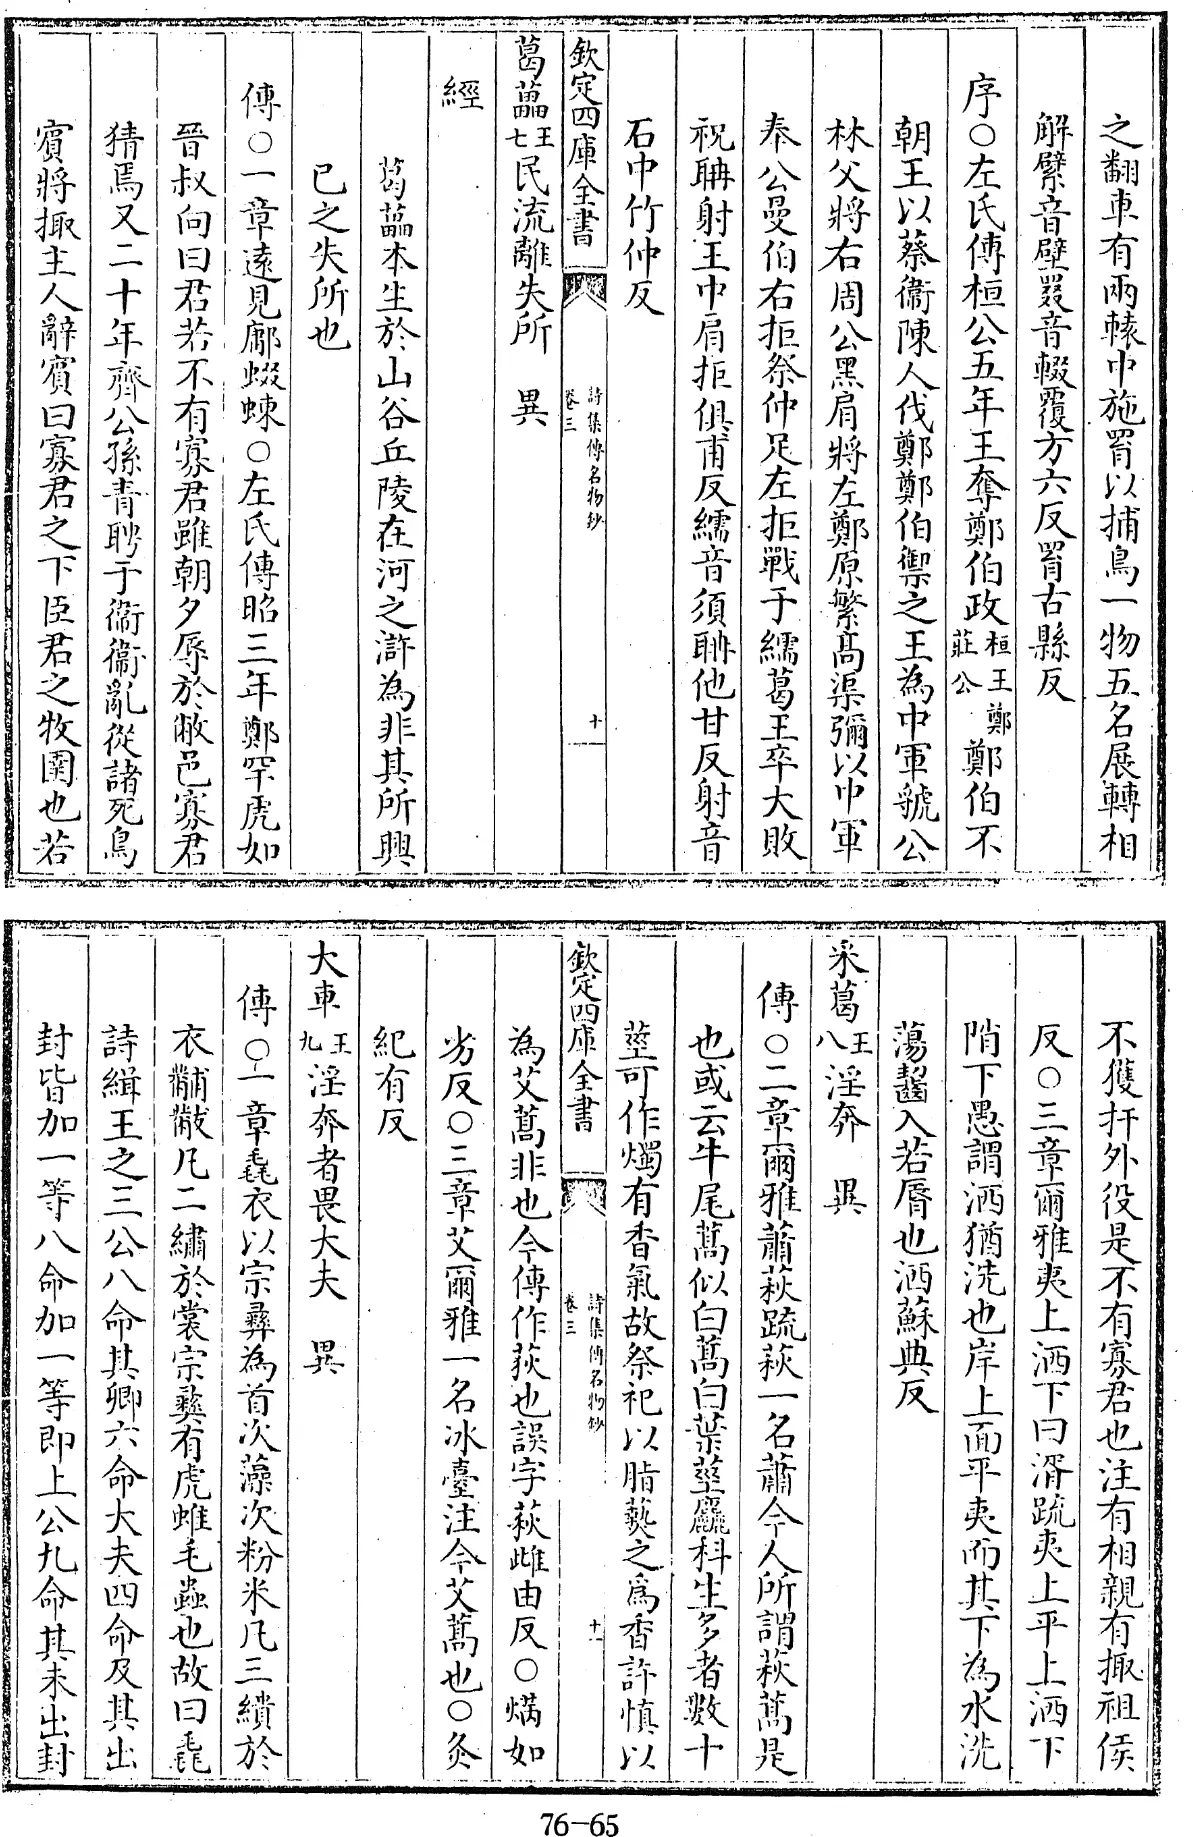 之翻車有兩轅中施罥以捕鳥一物五名展轉相
解繴音壁罬音輟覆方六反罥古縣反
序○左氏傳桓公五年王奪鄭伯政桓王鄭莊公鄭伯不
朝王以蔡衛陳人伐鄭鄭伯禦之王為中軍虢公
林父將右周公黑肩將左鄭原繁髙渠彌以中軍
奉公曼伯右拒祭仲足左拒戰于繻葛王卒大敗
祝聃射王中肩拒俱甫反繻音須聃他甘反射音
石中竹仲反
欽定四庫全書
詩集傳名物鈔
卷三
十
葛藟王七民流離失所　異
經
葛藟本生於山谷丘陵在河之滸為非其所興
已之失所也
傳○一章遠見鄘蝃蝀○左氏傳昭三年鄭罕虎如
晉叔向曰君若不有寡君雖朝夕辱於敝邑寡君
猜焉又二十年齊公孫青聘于衛衛亂從諸死鳥
賓將掫主人辭賓曰寡君之下臣君之牧圉也若
不獲扞外役是不有寡君也注有相親有掫祖侯
反○三章爾雅夷上洒下曰漘疏夷上平上洒下
陗下愚謂洒猶洗也岸上面平夷而其下為水洗
蕩齧入若脣也洒蘇典反
采葛王八淫奔　異
傳○二章爾雅蕭萩疏萩一名蕭今人所謂萩蒿是
也或云牛尾蒿似白蒿白葉莖麤科生多者數十
莖可作燭有香氣故祭祀以脂爇之爲香許慎以
欽定四庫全書
詩集傳名物鈔
卷三
十一
為艾蒿非也今傳作荻也誤字萩雌由反○焫如
劣反○三章艾爾雅一名冰臺注今艾蒿也○灸
紀有反
大車王九淫奔者畏大夫　異
傳○一章毳衣以宗彝為首次藻次粉米凡三繢於
衣黼黻凡二繡於裳宗彝有虎蜼毛蟲也故曰毳
詩緝王之三公八命其卿六命大夫四命及其出
封皆加一等八命加一等即上公九命其未出封
76-65